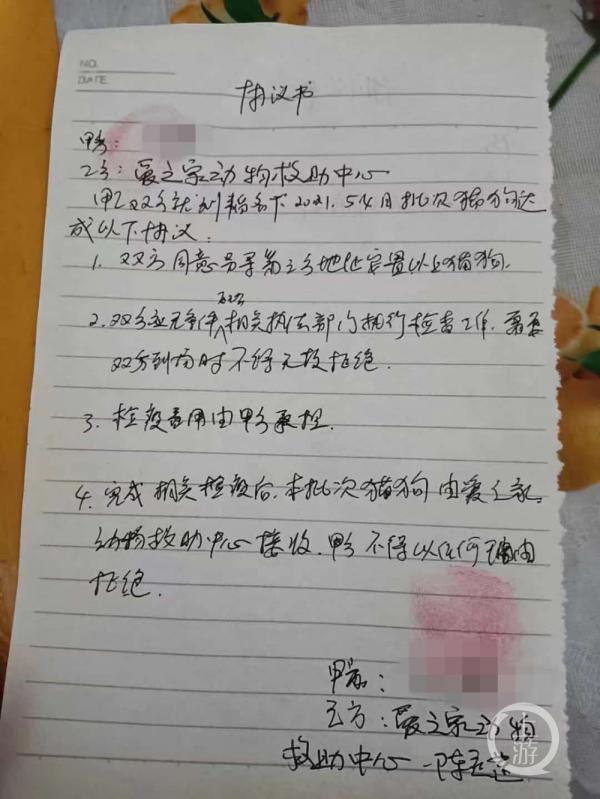 NO.
DATE
协议书
甲方:
乙方:爱之家动物救助中心
甲乙双方就刘 名下2021.5.4日批次猫狗达
成以下协议:
1. 双方同意另寻第三方地址安置以上猫狗.
2. 双方应无条件配合相关执法部门执行检查工作.需要
双方到场时不得无故拒绝.
3. 检疫费用由甲方承担.
4. 完成相关检疫后.本批次猫狗由爱之家
动物救助中心接收.甲方不得以任何理由
拒绝.
甲方:
乙方:爱之家动物
救助中心 陈
上游